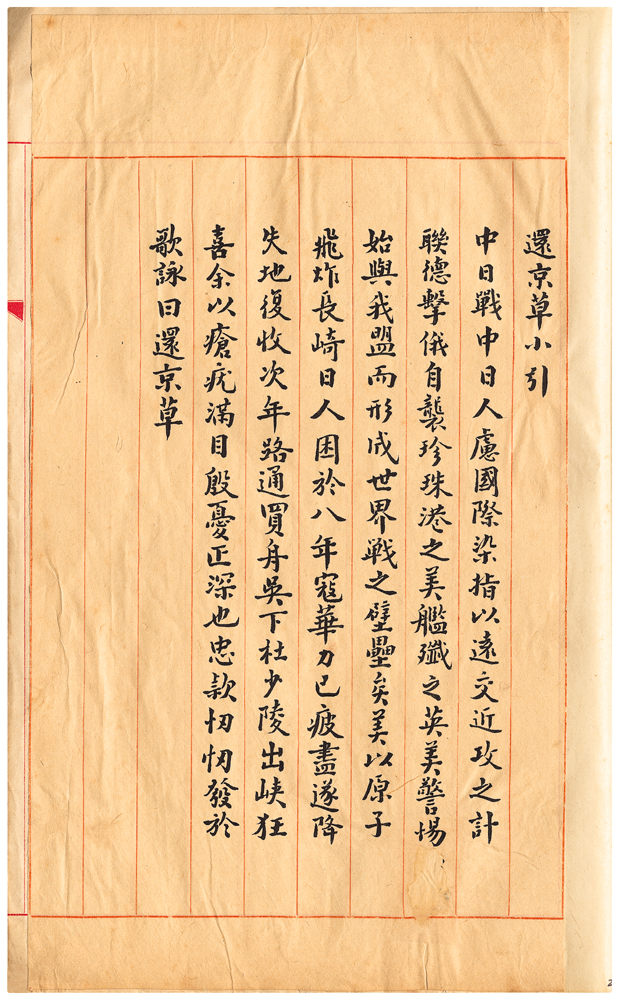 還京草小引
中日戰中日人慮國際染指以遠交近攻之計
聯德擊俄自襲珍珠港之美艦殲之英美警惕
始與我盟而形成世界戰之壁壘矣美以原子
飛炸長崎日人困於八年寇華力已疲盡遂降
失地復收次年路通買舟吳下杜少陵出峽狂
喜余以瘡疣滿目殷憂正深也忠款忉忉發於
歌詠曰還京草